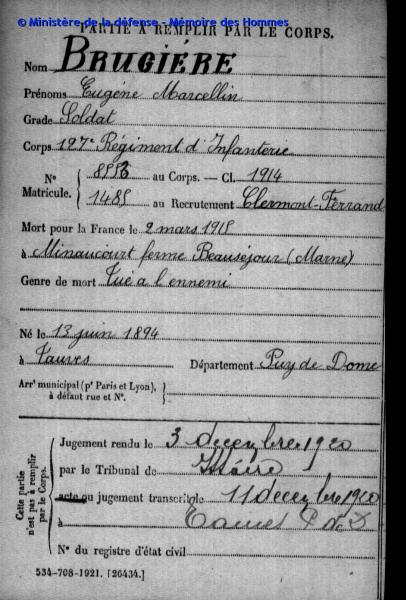 © Ministère de la défense - Mémoire des Hommes
PARTIE À REMPLIR PAR LE CORPS.
Nom BRUGIÉRE
Prénoms Eugéne Marcellin
Grade Soldat
Corps 127e Régiment d'Infanterie
N° 8556 au Corps. — Cl. 1914
Matricule. 1485 au Recrutement Clermont-Ferrand
Mort pour la France le 2 mars 1915
à Minaucourt ferme Beauséjour (Marne)
Genre de mort Tué a l'ennemi
Né le 13 juin 1894
à Tauves Département Puy de Dome
Arrt municipal (pr Paris et Lyon), à défaut rue et N°.
Cette partie n'est pas à remplir par le Corps.
Jugement rendu le 3 decembre 1920
par le Tribunal de Issoire
acte ou jugement transcrit le 11 decembre 1920
à Tauves P de D
N° du registre d'état civil
534-708-1921. [26434.]